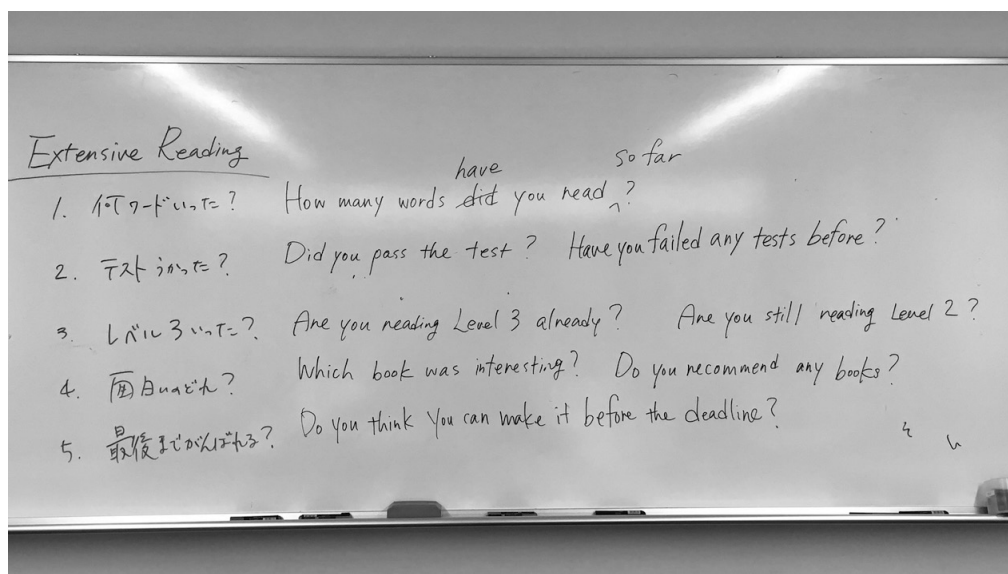 Extensive Reading
have so far
1. 何ワードいった? How many words did you read ?
2. テストうかった? Did you pass the test ? Have you failed any tests before ?
3. レベル3いった? Are you reading Level 3 already ? Are you still reading Level 2 ?
4. 面白いのどれ? Which book was interesting ? Do you recommend any books ?
5. 最後までがんばれる? Do you think You can make it before the deadline ?